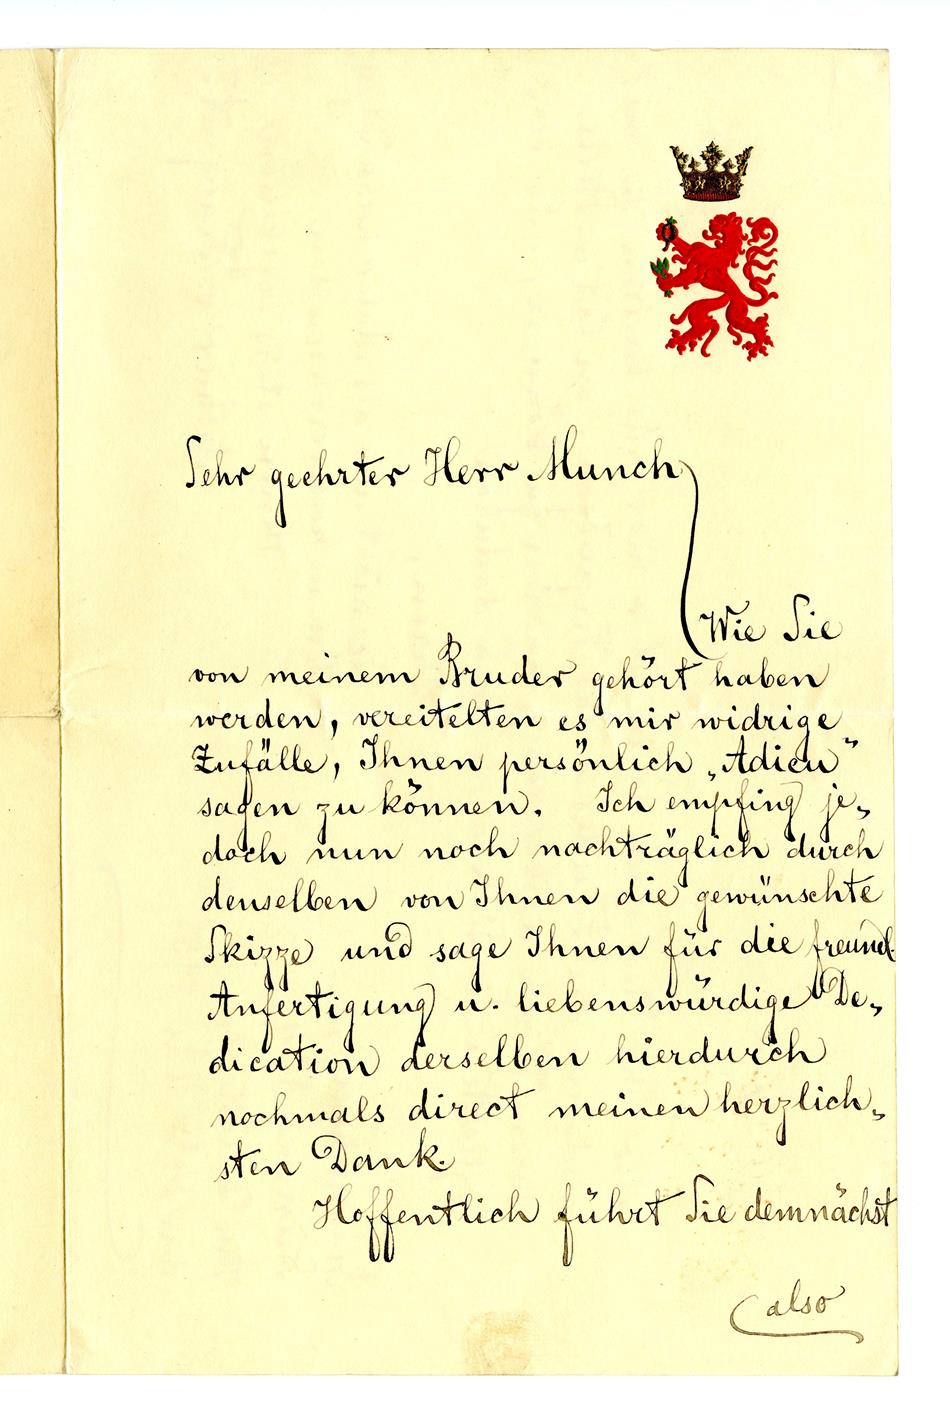 Sehr geehrter Herr Munch
Wie Sie
von meinem Bruder gehört haben
werden, vereitelten es mir widrige
Zufälle, Ihnen persönlich „Adieu”
sagen zu können. Ich empfing je-
doch nun noch nachträglich durch
denselben von Ihnen die gewünschte
Skizze und sage Ihnen für die freundl.
Anfertigung u. liebenswürdige De-
dication derselben hierdurch
nochmals direct meinen herzlich-
sten Dank.
Hoffentlich führt Sie demnächst
also